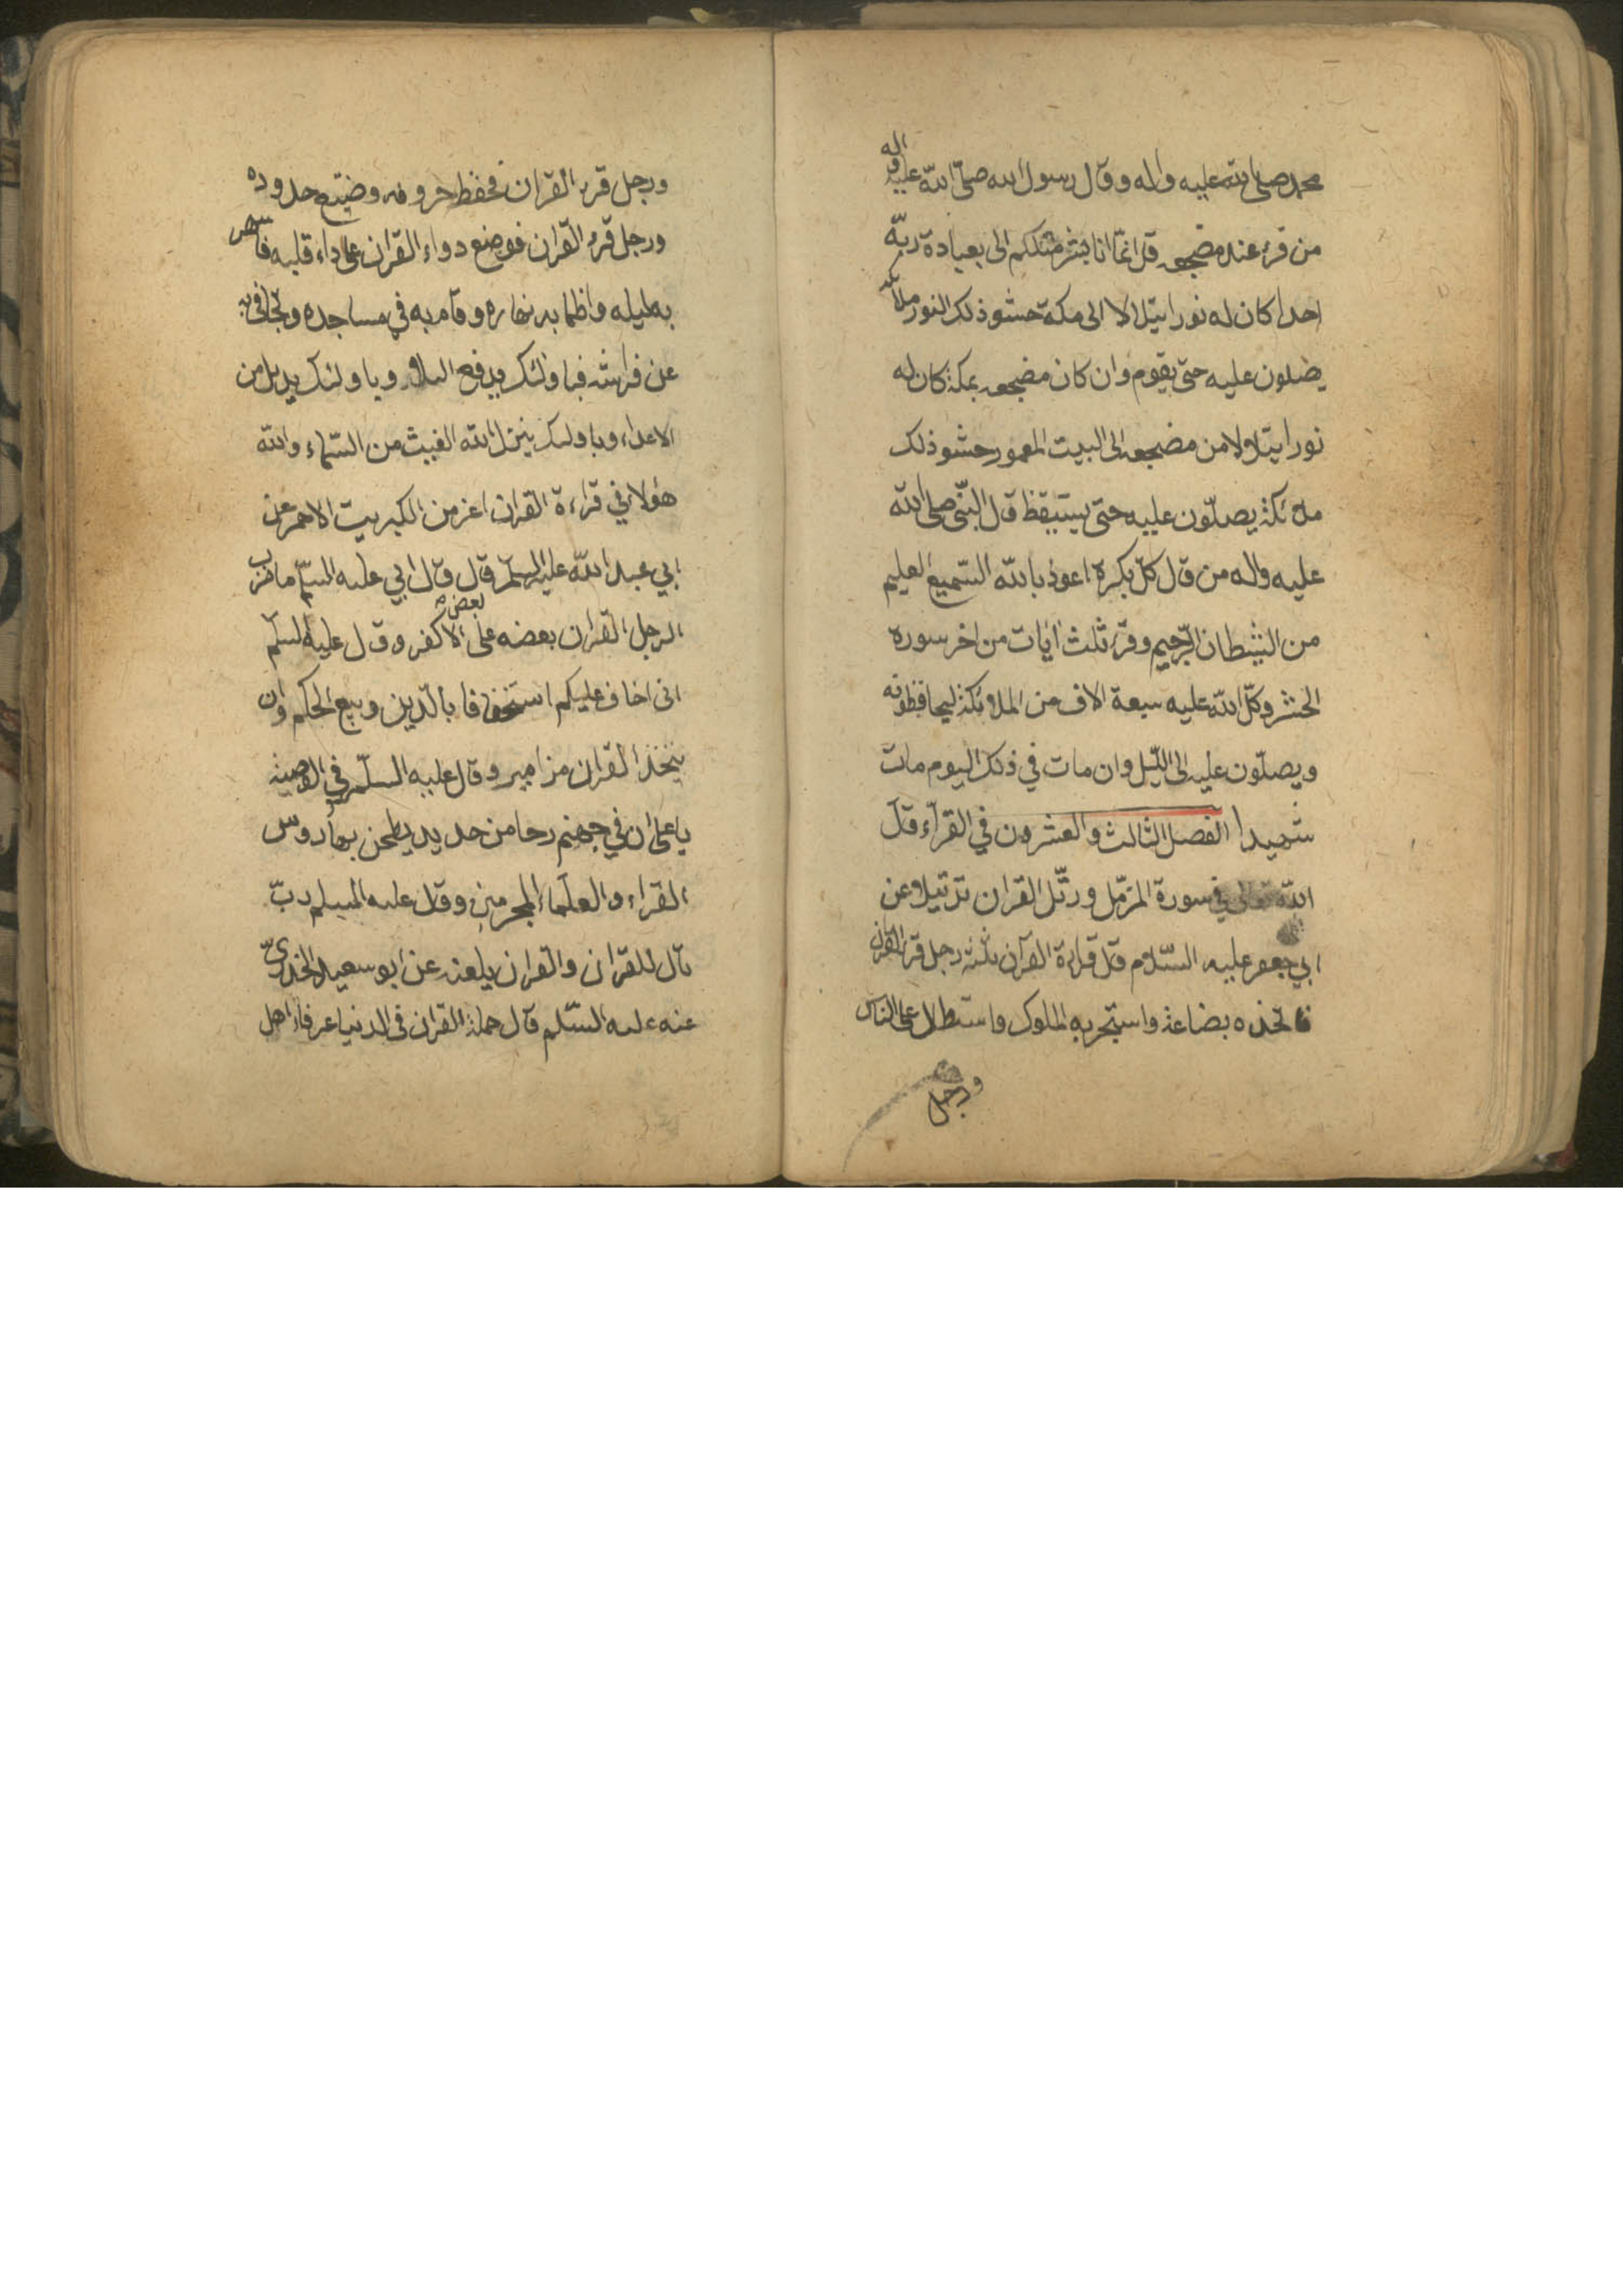 محمد صلى الله عليه واله وقال رسول الله صلى الله عليه واله
من قرء عند مضجعه قل انما انا بشر مثلكم الى بعبادة ربه
احدا كان له نورا يتلالا الى مكة حشو ذلك النور ملائكة
يصلون عليه حتى يقوم وان كان مضجعه بمكة كان له
نورا يتلاولا من مضجعه الى البيت المعمور حشو ذلك
ملائكة يصلّون عليه حتى يستيقظ قال النبّى صلى الله
عليه واله من قال كلّ بكرة اعوذ بالله السّميع العليم
من الشيطان الرّجيم وقرء ثلث ايات من اخر سورة
الحشر وكلّ الله عليه سبعة الاف من الملائكة ليحافظونه
ويصلّون عليه الى اللّيل وان مات في ذلك اليوم مات
شهيدا الفصل الثالث والعشرون في القرآء قال
الله تعالى في سورة المزمّل ورتّل القران ترتيلا وعن
ابي جعفر عليه السّلام قال قراءة القرآن ثلثة رجل قرء القران
فاتخذه بضاعة واستجر به الملوك واستطال على الناس
ورجل
ورجل قرء القران فحفظ حروفه وضيّع حدوده
ورجل قرء القران فوضع دواء القران على داء قلبه فاسهر
به ليله واظما به نهاره وقام به في مساجده وتجافى به
عن فراشه فباولئك يدفع البلاء وباولئك يديل من
الاعداء وباولئك ينزل الله الغيث من السّماء والله
هؤلاء في قراءة القران اعز من الكبريت الاحمر عن
ابي عبد الله عليه السلّم قال قال ابي عليه السلّم ما ضرب
الرجل القران بعضه على بعض الا كفر وقال عليه السلّم
انى اخاف عليكم استخفافا بالدّين وبيع الحكم وان
يتخذ القران مزامير وقال عليه السلّم في الوصية
يا على ان في جهنم رحا من حديد يطحن بها رءوس
القراء والعلماء المجرمين وقال عليه السلم ربّ
تال للقران والقران يلعنه عن ابو سعيد الخدرىّ
عنه عليه السّلم قال حملة القران فى الدنيا عرفاء اهل